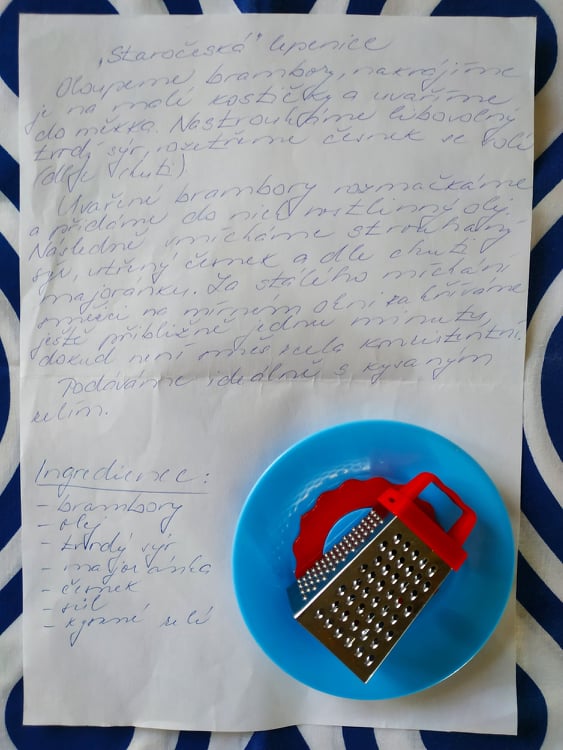 „Staročeská" lepenice
Oloupeme brambory, nakrájíme
je na malé kostičky a uvaříme
do měkka. Nastrouháme libovolný
tvrdý sýr, rozetřeme česnek se solí
(dle chuti).
Uvařené brambory rozmačkáme
a přidáme do nich rostlinný olej.
Následně vmícháme strouhaný
sýr, utřený česnek a dle chuti
majoránku. Za stálého míchání
směsi na mírném ohni zahříváme
ještě přibližně jednu minutu,
dokud není směs zcela konzistentní.
Podáváme ideálně s kysaným
zelím.
Ingredience:
- brambory
- olej
- tvrdý sýr
- majoránka
- česnek
- sůl
- kysané zelí